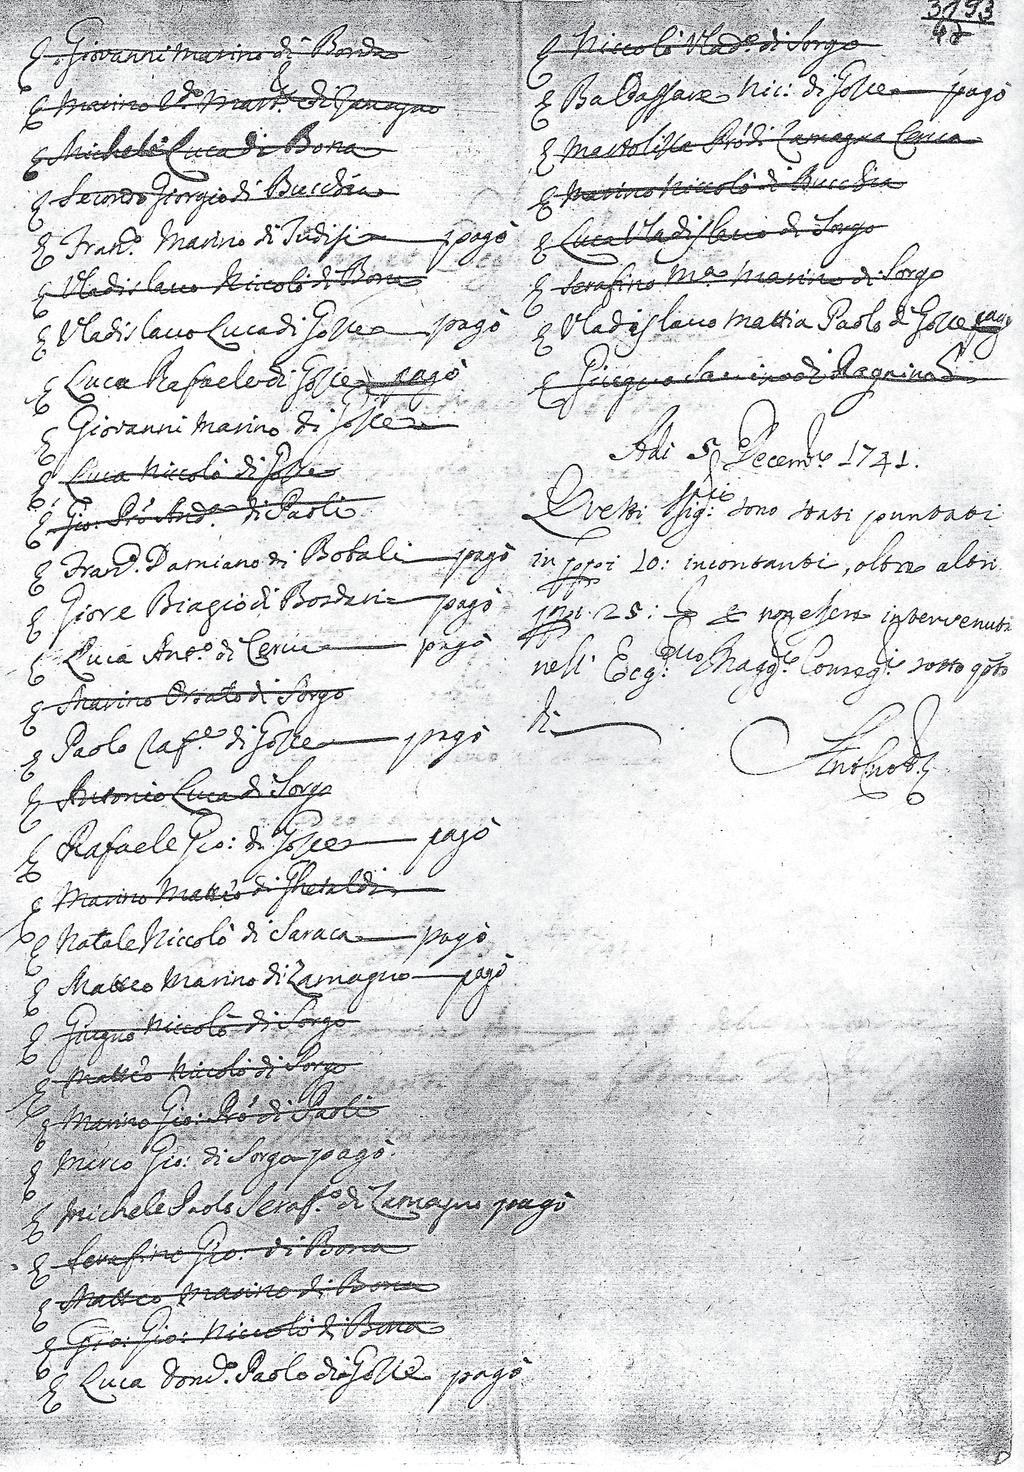 3193
48
Giovanni Marino di Bonda
Marino
Michele Luca di Bona
Secondo Giorgio di Bucchia
Franc.º Marino di Tudisi pagò
Vladislavo Niccolò di Bona
Vladislavo Luca di Gozze pagò
Luca Rafaele di Gozze pagò
Giovanni Marino di Gozze
Luca Niccolò di Gozze
Gio: Prō And.ª di Paoli
Franc.º Damiano di Bobali pagò
Giore Biagio di Bordari pagò
Luca Ant.º di Cerva pagò
Marino Orsato di Sorgo
Paolo Raf.e di Gozze pagò
Antonio Luca di Sorgo
Rafaele Gio: di Gozze pagò
Marino Matteo di Ghetaldi
Natale Niccolò di Saraca pagò
Matteo Marino di Zamagno pagò
Giugno Niccolò di Sorgo
Matteo Niccolò di Sorgo
Marino Gio: Prō di Paoli
Marco Gio: di Sorgo pagò.
Michele Paolo Seraf.º di Zamagno pagò
Serafino Gio: di Bona
Matteo Marino di Bona
Gio: Niccolò di Bona
Luca Paolo di Gozze pagò
Niccolò Vlad.º di Sorgo
Baldassare Nic: di Gozze pagò
Martolizza Prō di Zamagna Cerva
Marino Niccolò di Bucchia
Luca Vladislavo di Sorgo
Serafino M.ª Marino di Sorgo
Vladislavo Mattia Paolo di Gozze pagò
Giugno di Ragnina
Adi 5 Decem.e 1741.
Questi Sig.ri sono stati puntati
in 10: incontanti, oltre altri
25: non essere intervenuti
nell' Ecc.mo Magg.e Conseg.o sotto qsto
di